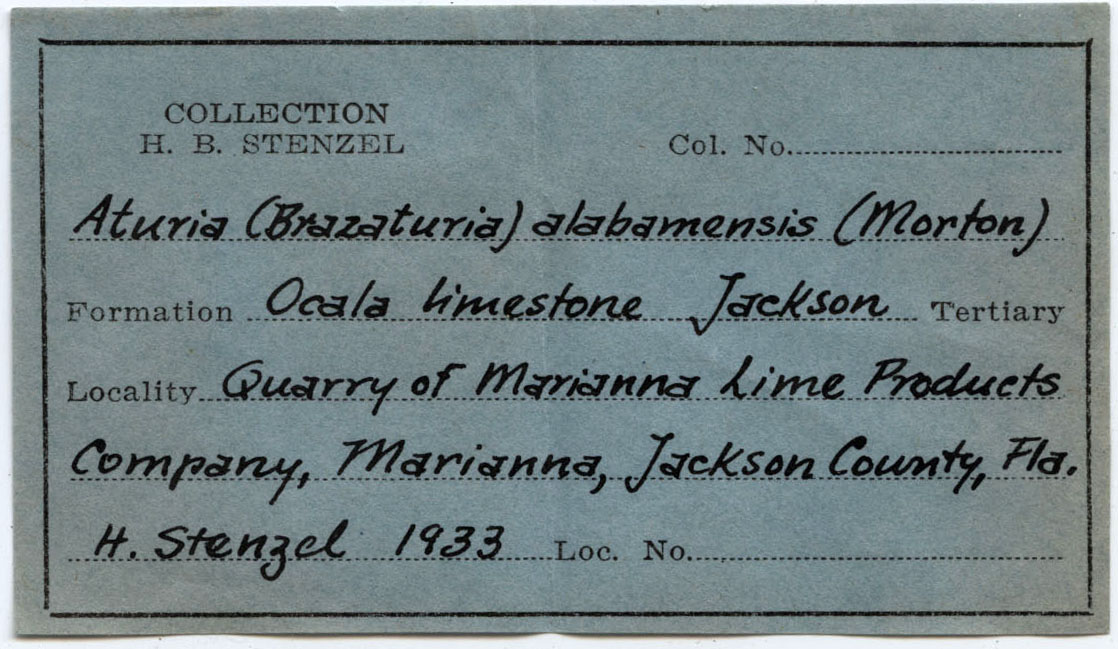 COLLECTION
H. B. STENZEL Col. No.
Aturia (Brazaturia) alabamensis (Morton)
Formation Ocala limestone Jackson Tertiary
Locality Quarry of Marianna Lime Products
Company, Marianna, Jackson County, Fla.
H. Stenzel 1933 Loc. No.